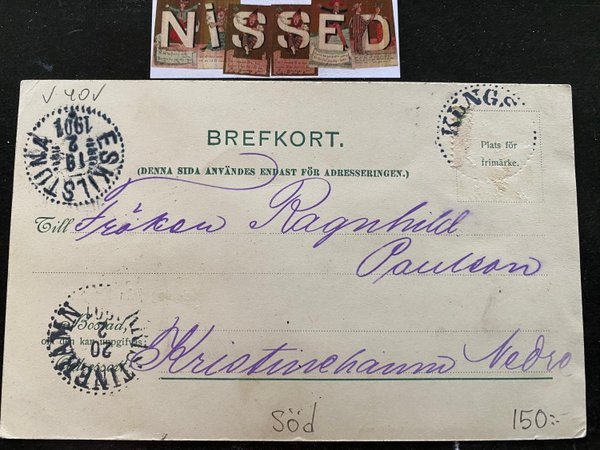 NISSED
V 40V
ESKILSTUNA
19
2
1901
KUNGS
BREFKORT.
(DENNA SIDA ANVÄNDES ENDAST FÖR ADRESSERINGEN.)
Plats för
frimärke.
Till Fröken Ragnhild
Paulson
Bostad,
om den kan uppgifvas
TINEHAMN
20
2
Kristinehamn Nedre
Söd
150:-